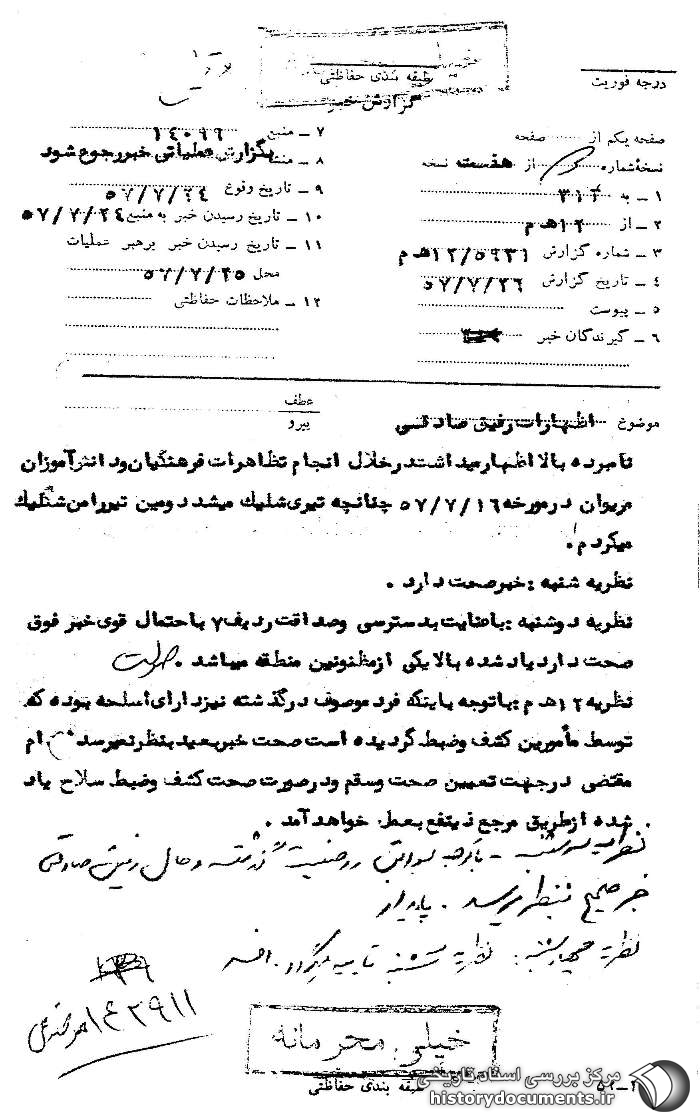 خیلی محرمانه
طبقه بندی حفاظتی
گزارش خبر
درجه فوریت
صفحه یکم از صفحه
نسخهٔ شماره از هفت نسخه
۱ ـ به ۳۱۲
۲ ـ از ۱۲ ه‍ م
۳ ـ شماره گزارش ۱۲/۵۹۳۱ ه‍ م
۴ ـ تاریخ گزارش ۵۷/۷/۲۶
۵ ـ پیوست
۶ ـ گیرندگان خبر
۷ ـ منبع ۱۴۰۹۹
۸ ـ منشاء بگزارش عملیاتی خبر رجوع شود
۹ ـ تاریخ وقوع ۵۷/۷/۲۴
۱۰ ـ تاریخ رسیدن خبر به منبع ۵۷/۷/۲۴
۱۱ ـ تاریخ رسیدن خبر برهبر عملیات
محل ۵۷/۷/۲۵
۱۲ ـ ملاحظات حفاظتی
عطف
پیرو
موضوع اظهارات رفیق صادقی
نامبرده بالا اظهار میداشت در خلال انجام تظاهرات فرهنگیان و دانش‌آموزان
مریوان در مورخه ۵۷/۷/۱۶ چنانچه تیری شلیک میشد دومین تیر را من شلیک
میکردم.
نظریه شنبه : خبر صحت دارد .
نظریه دوشنبه : با عنایت بدسترسی و صداقت ردیف ۷ با احتمال قوی خبر فوق
صحت دارد یاد شده بالا یکی از مظنونین منطقه میباشد .
نظریه ۱۲ ه‍ م : با توجه باینکه فرد موصوف در گذشته نیز دارای اسلحه بوده که
توسط مأمورین کشف و ضبط گردیده است صحت خبر بعید بنظر نمیرسد ام
مقتضی در جهت تعیین صحت و سقم و در صورت صحت کشف و ضبط سلاح یاد
شده از طریق مرجع ذینفع بعمل خواهد آمد .
نظریه سه‌شنبه ـ با توجه بسوابق و وضعیت گذشته و حال رفیق صادقی
خبر صحیح بنظر میرسد . پایدار
نظریه چهارشنبه : نظریه سه‌شنبه تایید میگردد.
۱۴۲۹۱۱
خیلی محرمانه
طبقه بندی حفاظتی
مرکز بررسی اسناد تاریخی
historydocuments.ir